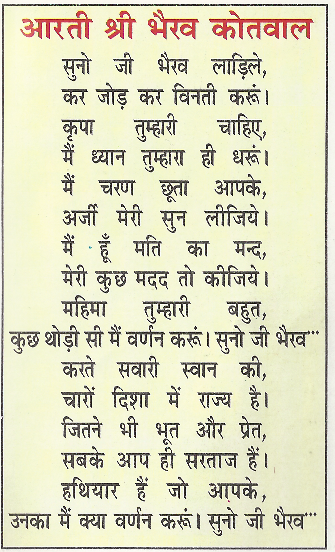 आरती श्री भैरव कोतवाल
सुनो जी भैरव लाड़िले,
कर जोड़ कर विनती करूं।
कृपा तुम्हारी चाहिए,
मैं ध्यान तुम्हारा ही धरूं।
मैं चरण छूता आपके,
अर्जी मेरी सुन लीजिये।
मैं हूँ मति का मन्द,
मेरी कुछ मदद तो कीजिये।
महिमा तुम्हारी बहुत,
कुछ थोड़ी सी मैं वर्णन करूं। सुनो जी भैरव...
करते सवारी स्वान की,
चारों दिशा में राज्य है।
जितने भी भूत और प्रेत,
सबके आप ही सरताज हैं।
हथियार हैं जो आपके,
उनका मैं क्या वर्णन करूं। सुनो जी भैरव...